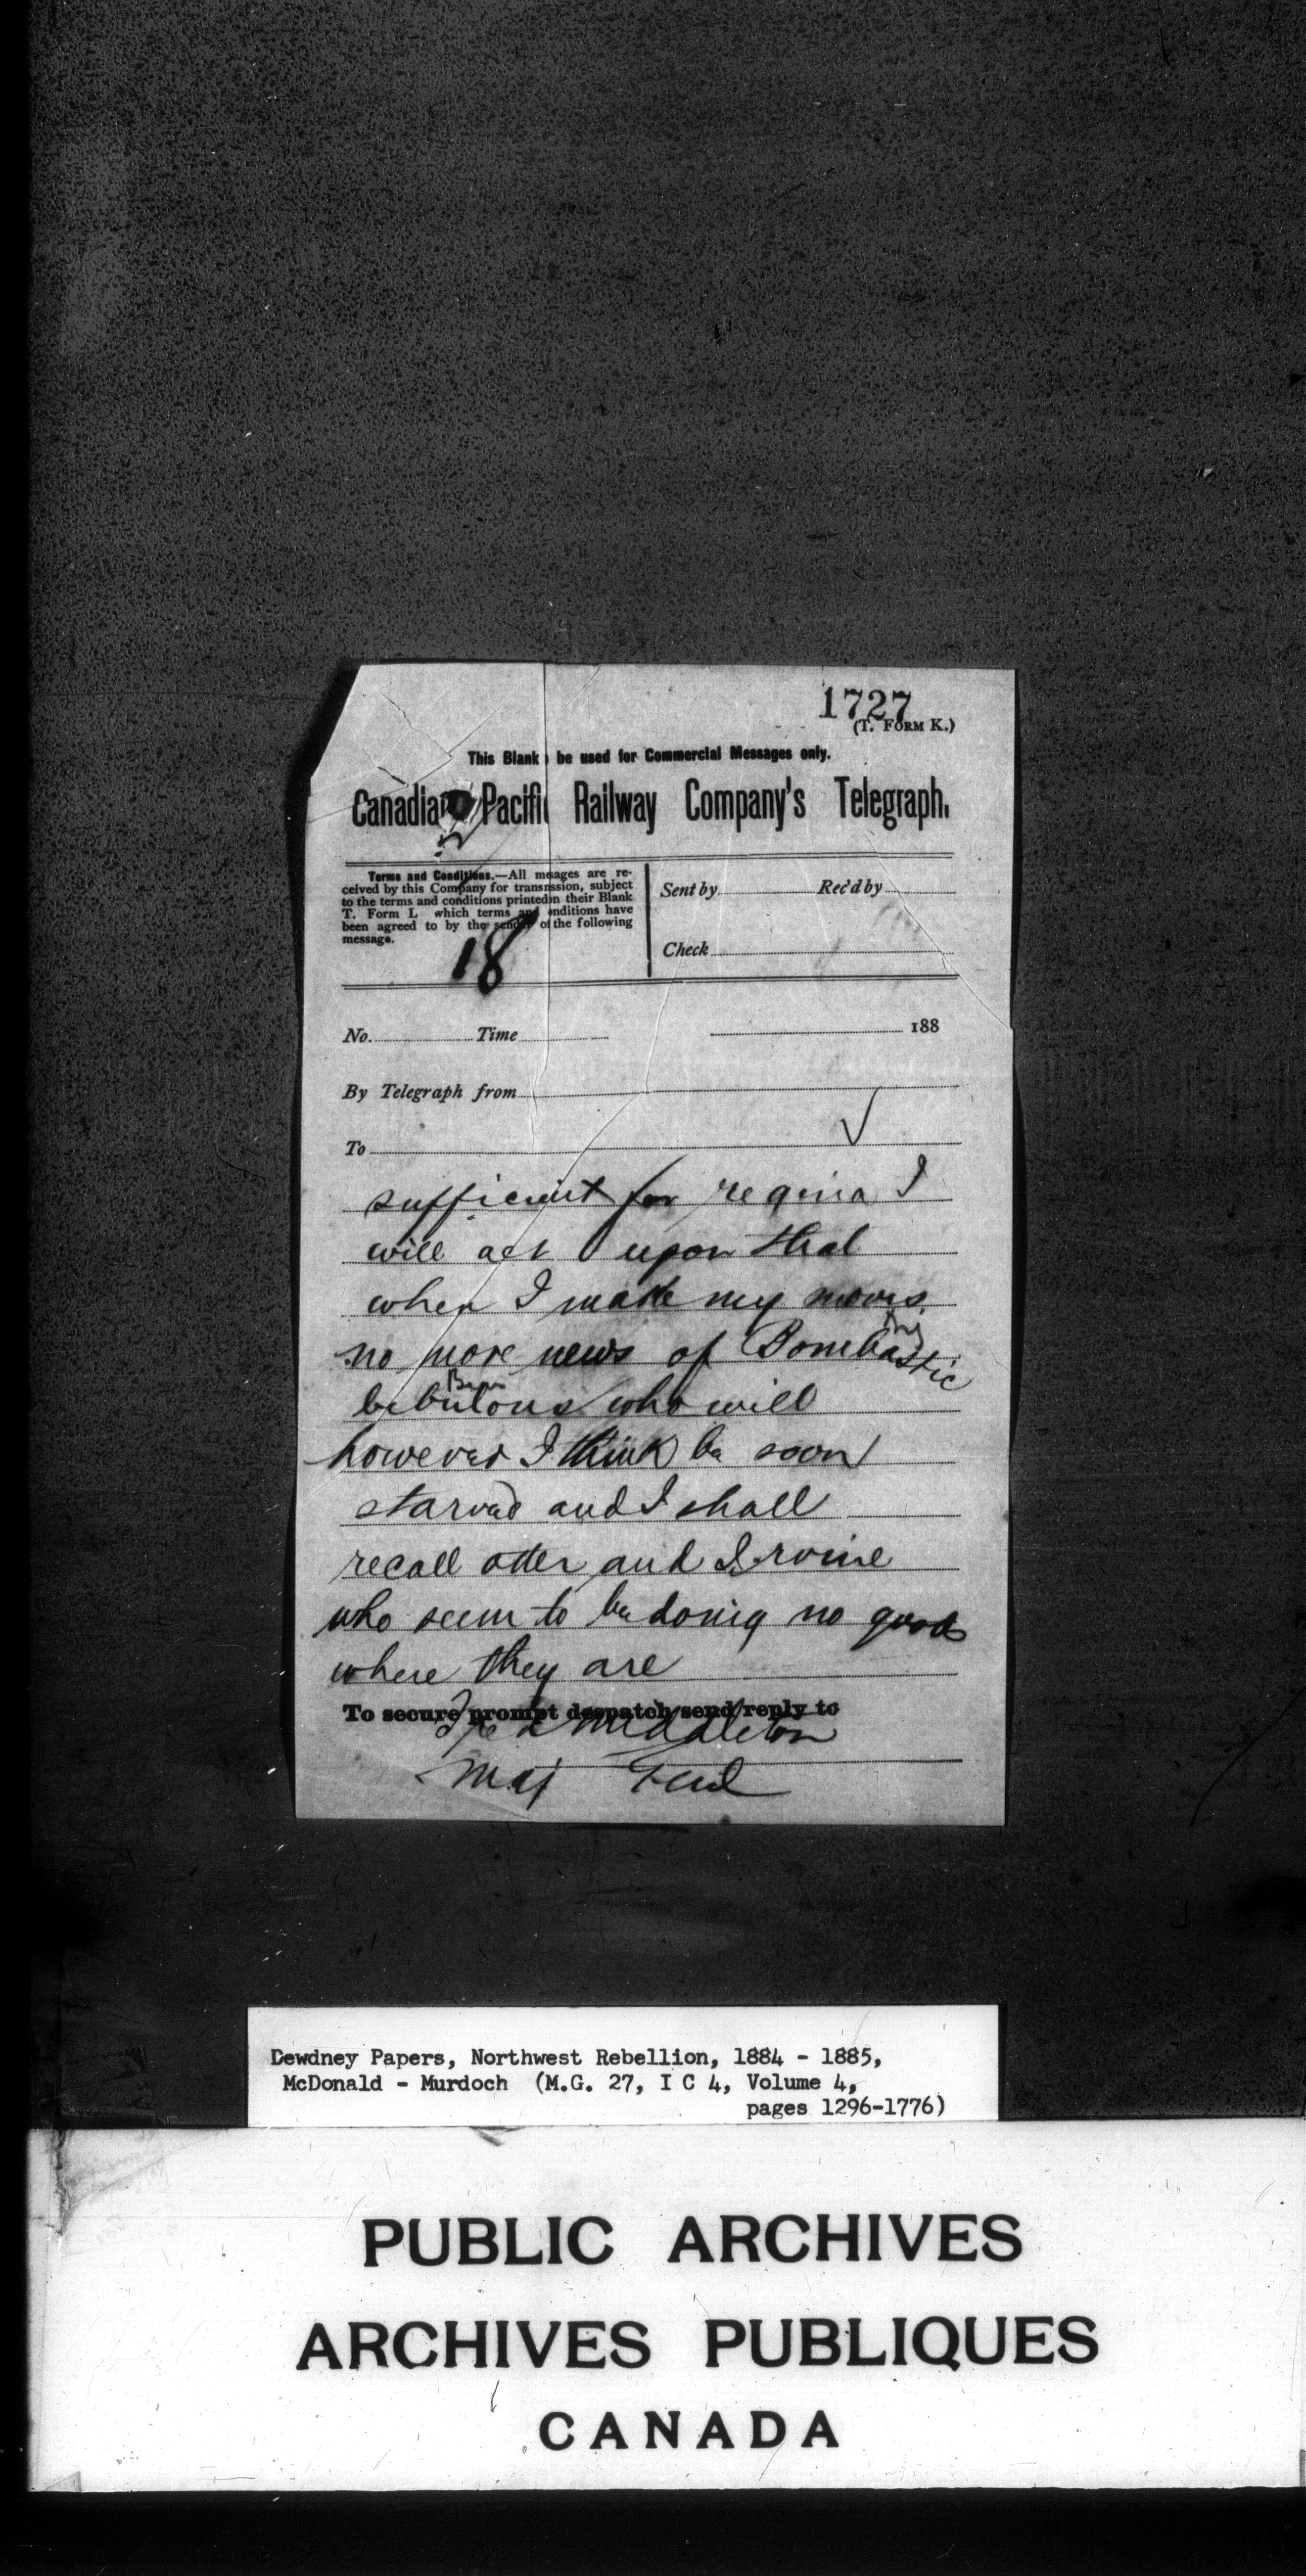 1727
(T. FORM K.)
This Blank be used for Commercial Messages only.
Canadian Pacific Railway Company's Telegraph.
Terms and Conditions.—All messages are re-
ceived by this Company for transmission, subject
to the terms and conditions printed in their Blank
T. Form L which terms and conditions have
been agreed to by the sender of the following
message.
Sent by Rec'd by
Check
18
No. Time 188
By Telegraph from
To
sufficient for regina I
will act upon that
when I made my moves
no more news of Bombastic
Big
Bear
bibulous who will
however I think be soon
starved and I shall
recall otter and Irvine
who seem to be doing no good
where they are
To secure prompt despatch send reply to
Fred Middleton
Maj Genl
Dewdney Papers, Northwest Rebellion, 1884 - 1885,
McDonald - Murdoch (M.G. 27, I C 4, Volume 4,
pages 1296-1776)
PUBLIC ARCHIVES
ARCHIVES PUBLIQUES
CANADA